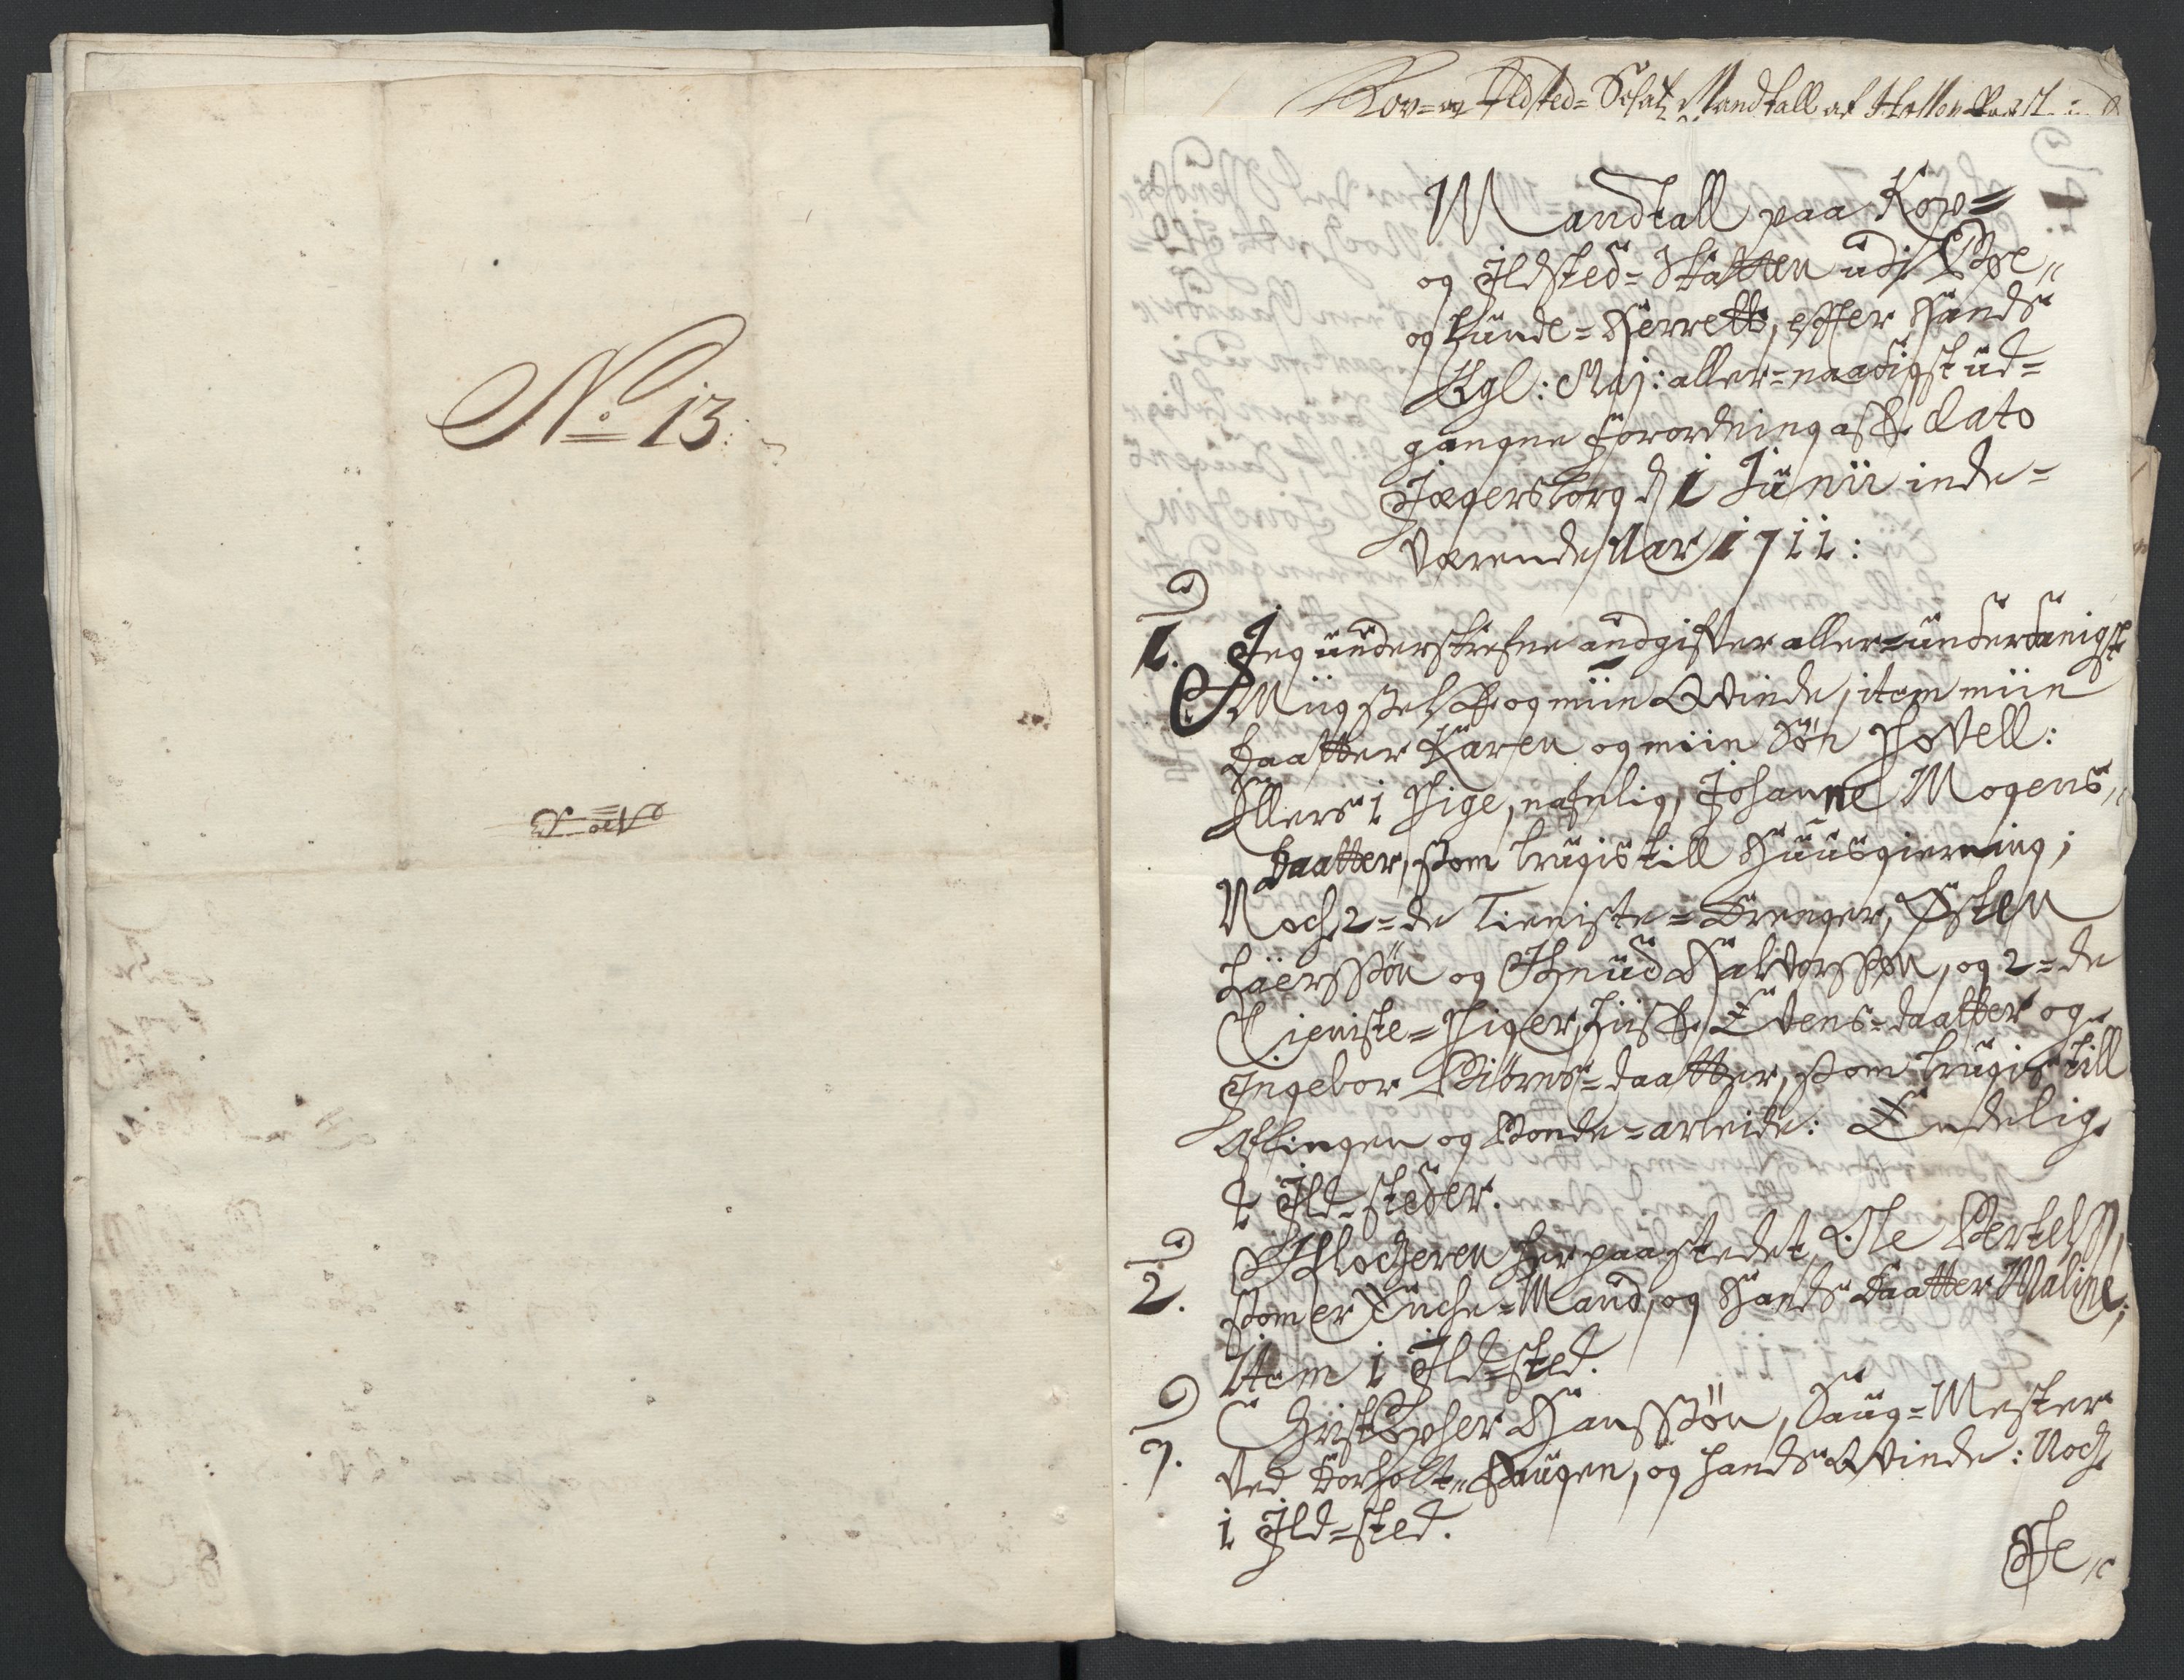 No 13.
Kop- og Ildsted-Schatz Mandtall af
Mandtall paa Kop=
og Ildsted=Skatten udi Bøe,,
og Lunde=Herrett, effter Hands
Kgl: Maj: aller=naadigst ud=
gangne Forordning aff dato
Jægersborg d 1 Junii inde=
værende Aar 1711:
1. Jeg underskrefne andgifver aller=underdanigst
Miig self og miin Qvinde, item miin
Daatter Karen og miin Søn Povell:
Ellers 1 Pige, nafnlig, Johanne Mogens,,
Daatter, som brugis till Huusgierning;
Noch 2=de Tieniste=Drenger, Østen
Laersszøn og Knud Halvorsszøn, og 2=de
Tieniste=Piger, Liisz Evens=daatter og
Ingebor Biörns=daatter, som brugis till
Aflingen og Bonde=arbeide: Endelig
2 Ild=steder.
2. Klocheren her paa stedet, Ole Bertelsz,
som er Enche=Mand, og Hands Daatter Maline;
Item 1 Ild=sted.
3. Christopher Hansszøn, Saug=Mester
ved Dorholt,, Saugen, og hands Qvinde: Noch
1 Ild=sted.